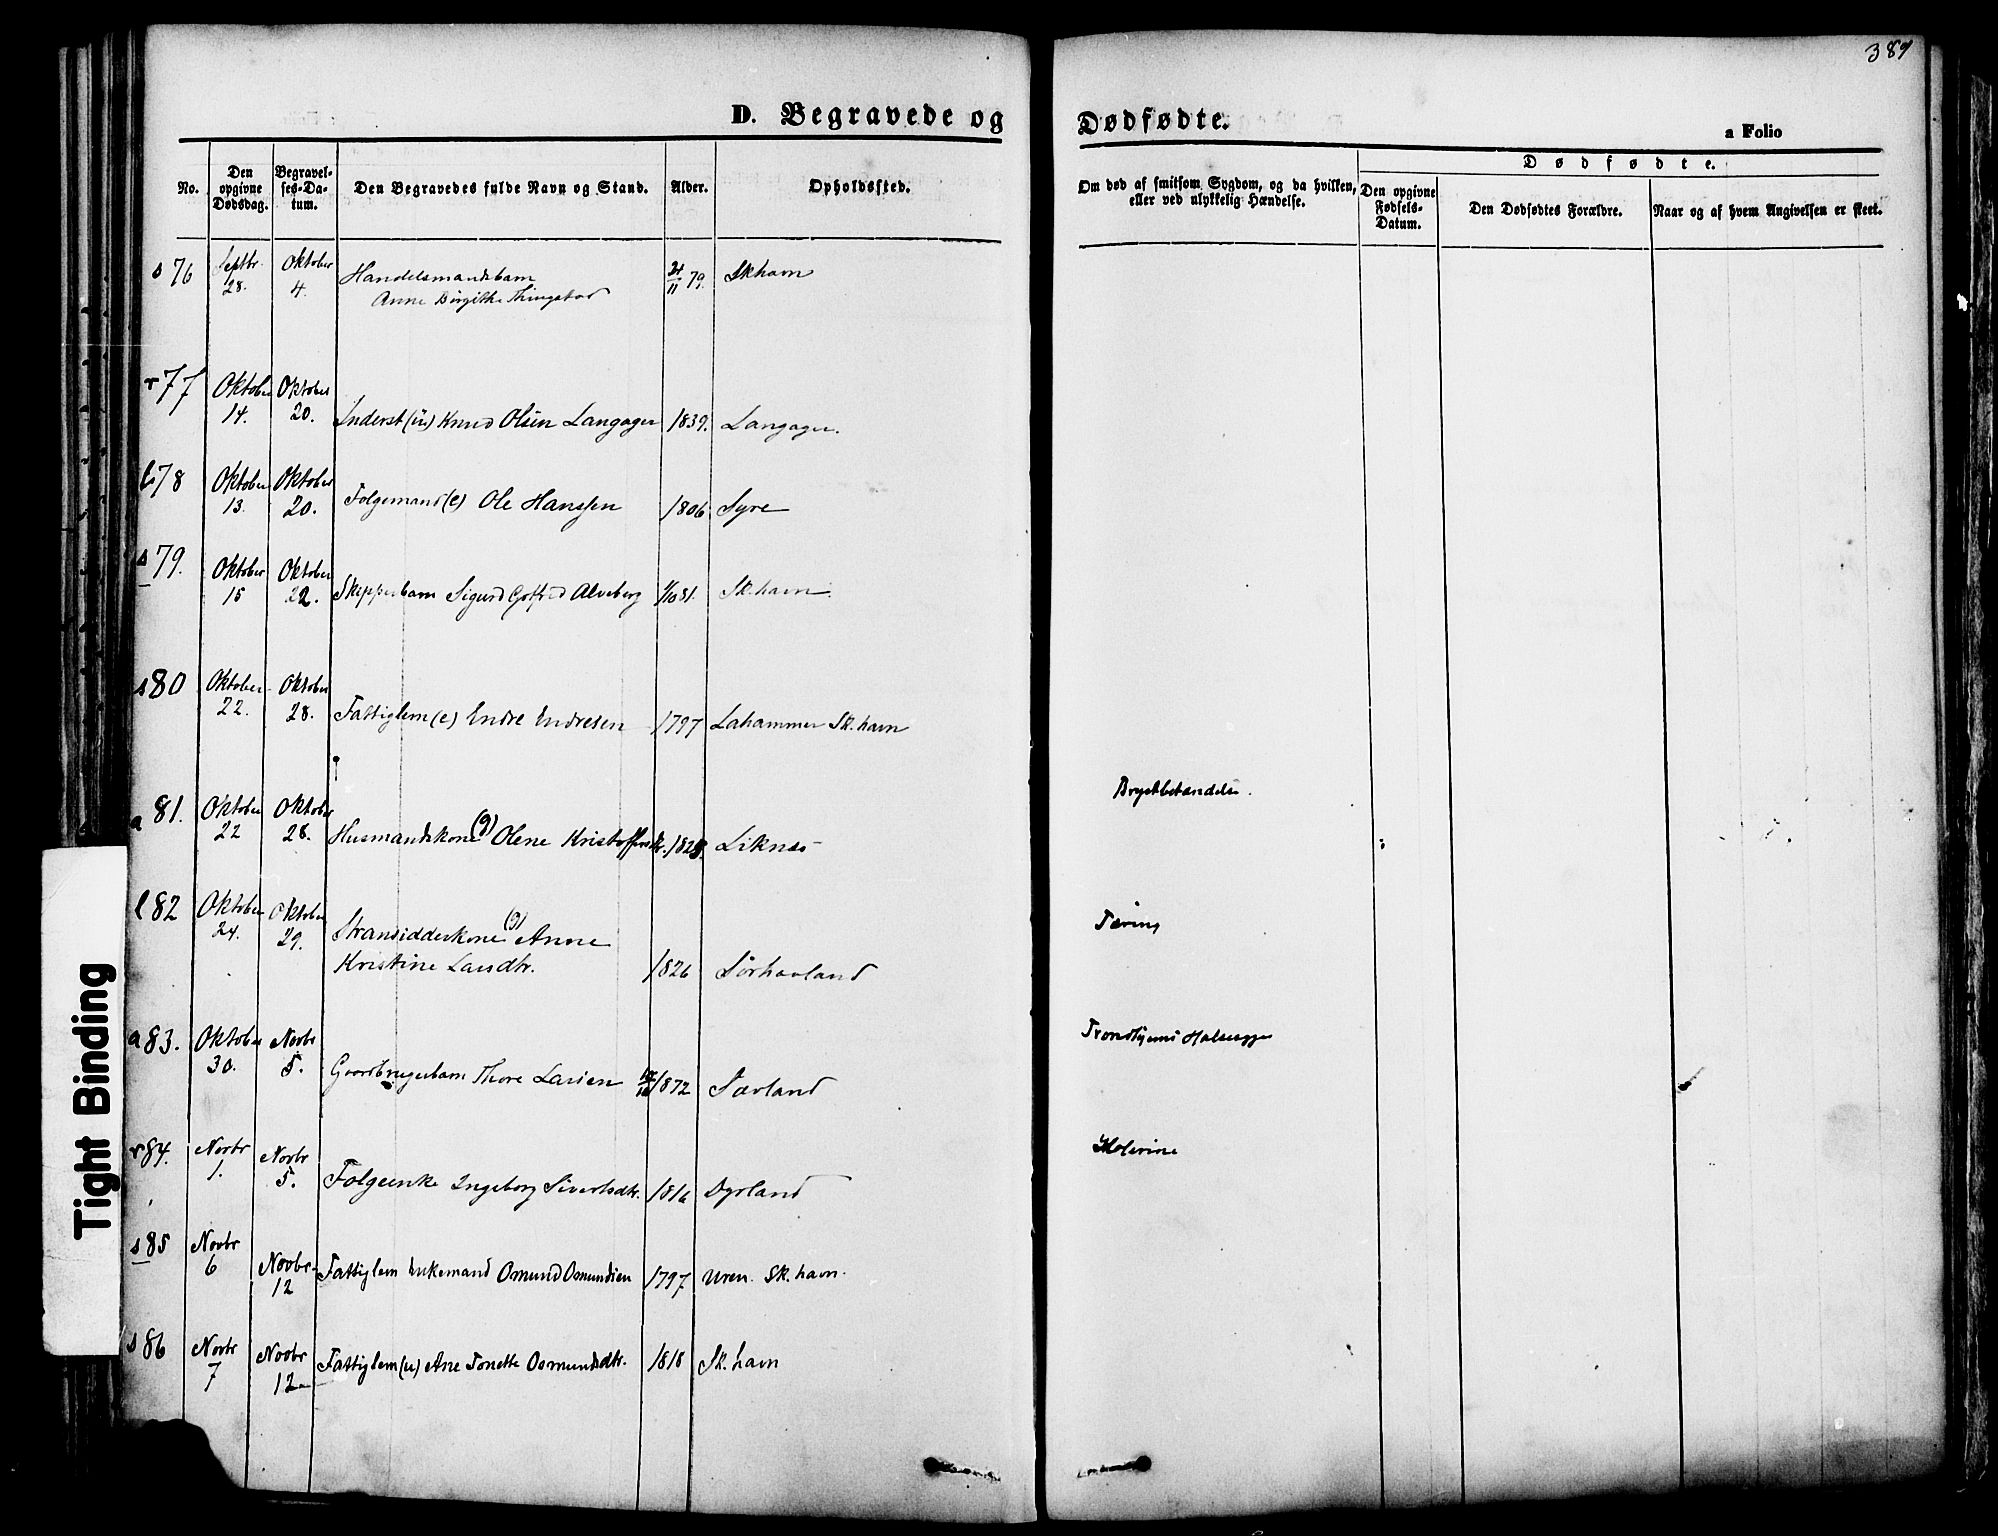 389
D. Begravede og Dødfødte.
a Folio
No.
Den opgivne Dødsdag.
Begravelses-Datum.
Den Begravedes fulde Navn og Stand.
Alder.
Opholdssted.
Om død af smitsom Sygdom, og da hvilken, eller ved ulykkelig Hændelse.
Dødfødte.
Den opgivne Fødsels-Datum.
Den Dødfødtes Forældre.
Naar og af hvem Angivelsen er skeet.
s 76 Septbr. 28. Oktober 4. Handelsmandsbarn
Anne Birgithe Thingstad 24/11 79. Skhavn
r 77 Oktober 14. Oktober 20. Inderst (u) Knud Olsen Langager 1839. Langager.
78 Oktober 13. Oktober 20. Folgemand (e) Ole Hanssen 1806. Syre
s 79. Oktober 15 Oktober 22. Skipperbarn Sigurd Gotfred Alveberg 1/10 81. Sk.havn.
s 80 Oktober 22. Oktober 28. Fattiglem (e) Endre Endresen 1797 Lahammer Sk.havn
a 81. Oktober 22 Oktober 28. Husmandskone (g) Olene Kristoffersdtr. Liknes Brystbetændelse.
l 82 Oktober 24. Oktober 29. Strandsidderkone (g) Anne
Kristine Larsdtr. 1826 Sørhavland Tæring
a 83. Oktober 30. Novbr 5. Gaardbrugerbarn Thore Larsen 1872 Sævland Trondhjems Halsesyge
r 84. Novbr 1. Novbr 5. Folgeenke Ingeborg Sivertsdtr. 1816 Dyrland Kolerine
s 85 Novbr 6 Novbr. 12 Fattiglem Enkemand Osmund Osmundsen 1797 Uren. Sk.havn.
s 86 Novbr 7 Novbr 12 Fattiglem (u) Ane Tonette Osmundsdtr. 1818 Sk.havn
Tight Binding